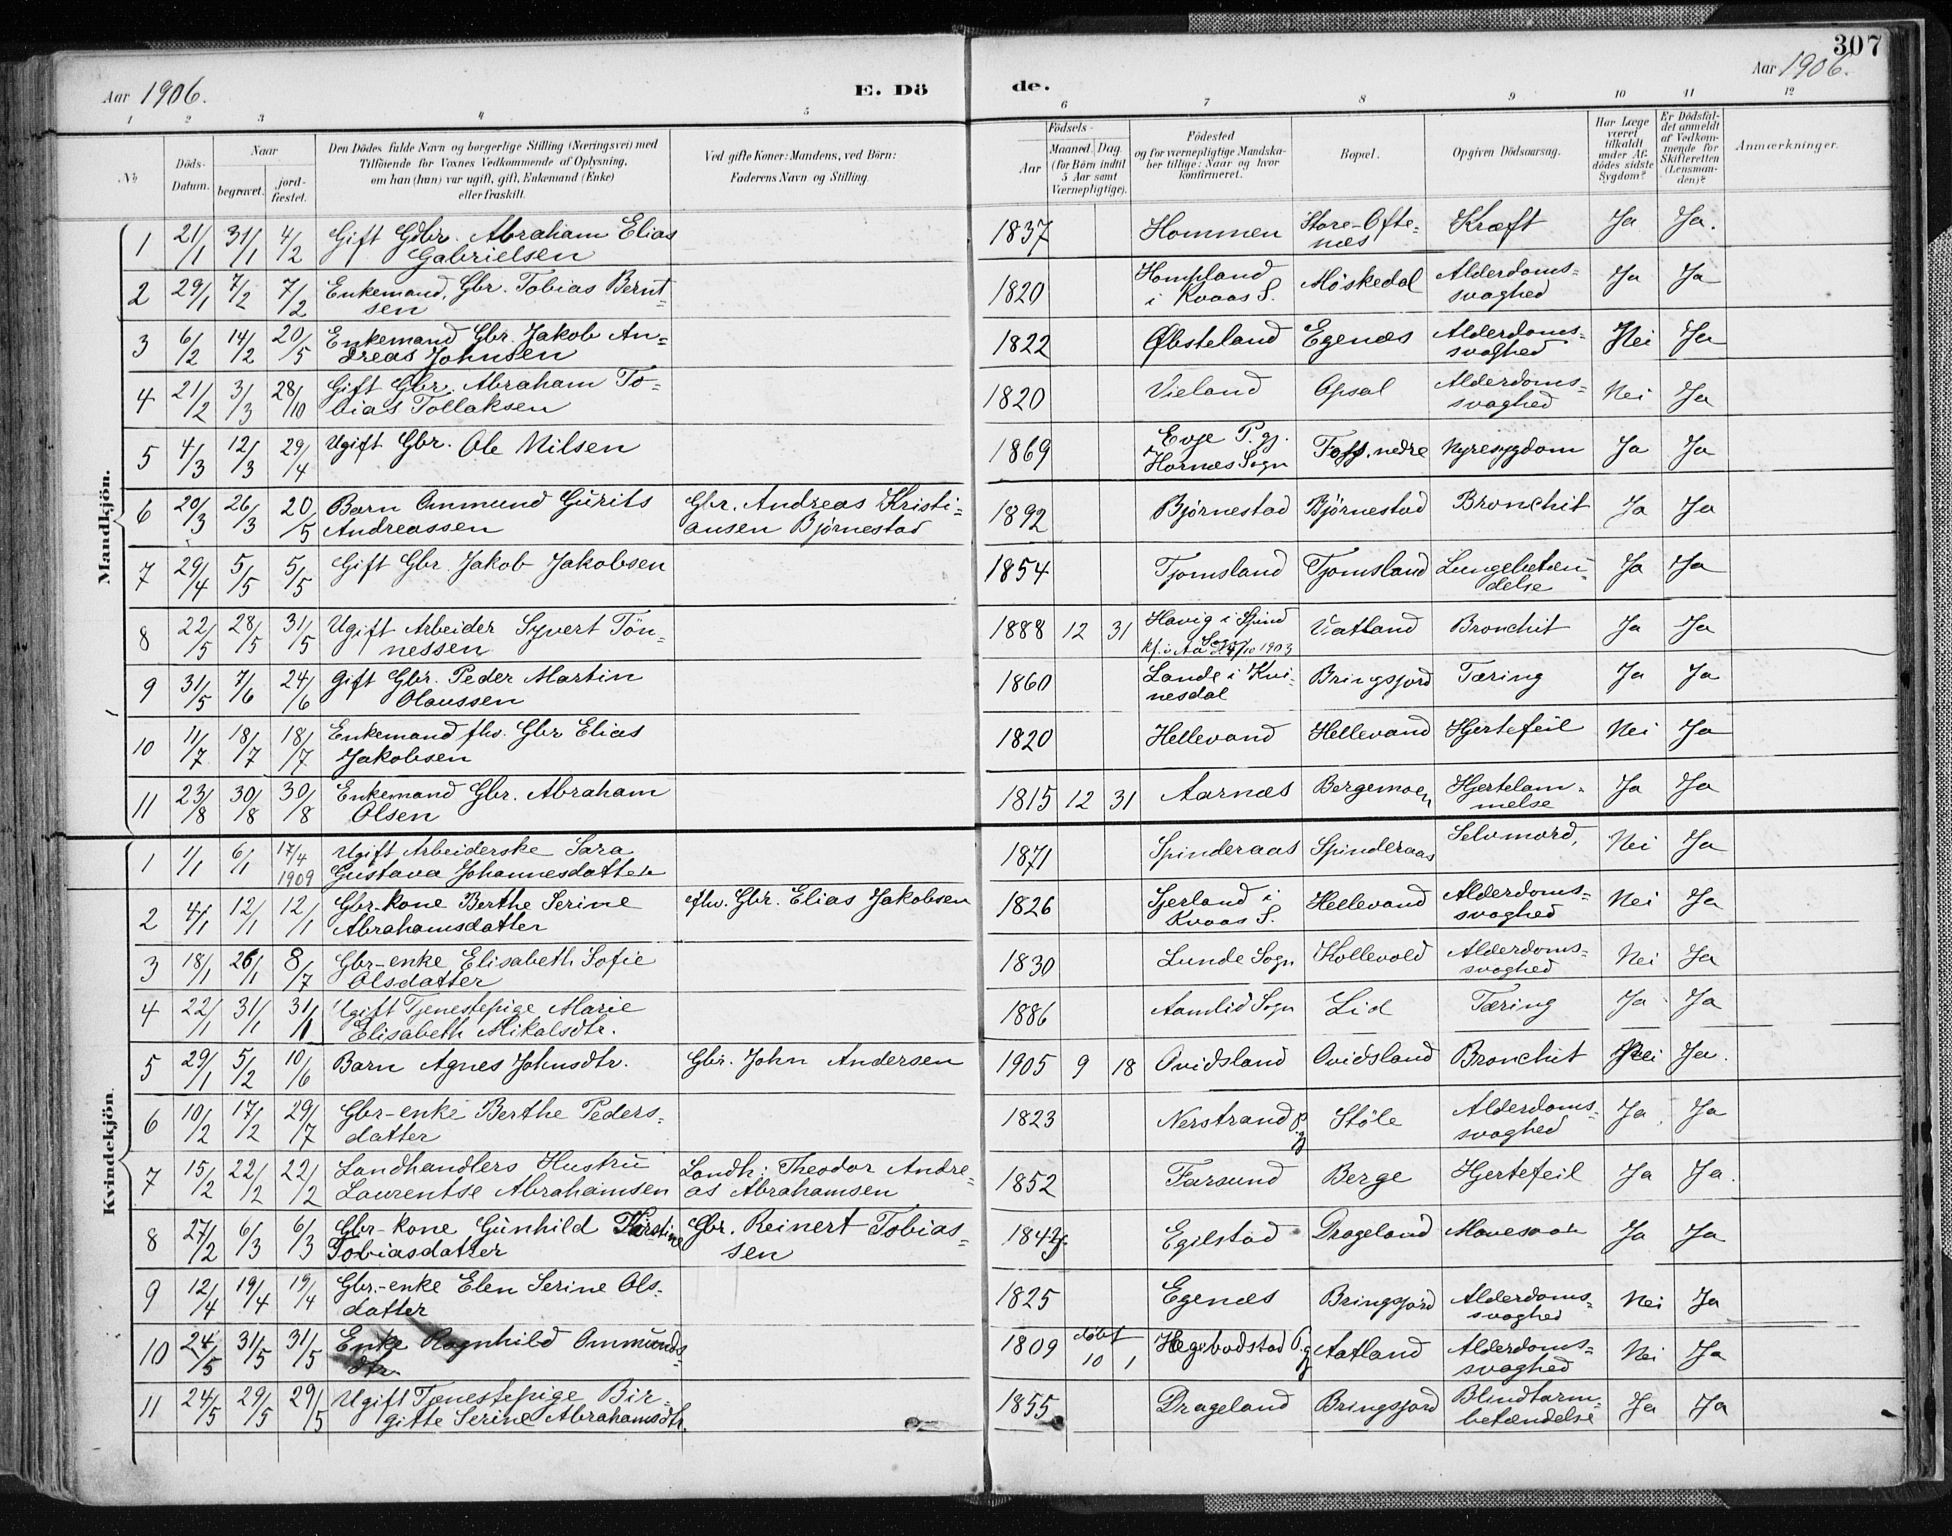 307
Aar 1906. E. Dö de. Aar 1906.
1 2 3 4 5 6 7 8 9 10 11 12
No Döds-Datum. Naar begravet. jord-fæstet. Den Dödes fulde Navn og borgerlige Stilling (Næringsvei) med Tilföiende for Voxnes Vedkommende af Oplysning, om han (hun) var ugift, gift, Enkemand (Enke) eller fraskilt. Ved gifte Koner: Mandens, ved Börn: Faderens Navn og Stilling. Födsels- Aar Maaned. Dag. (for Börn indtil 5 Aar samt Værnepligtige). Födested og for værnepligtige Mandskaber tillige: Naar og hvor konfirmeret. Bopæl. Opgiven Dödsaarsag. Har Læge været tilkaldt under Afdödes sidste Sygdom? Er Dödsfaldet anmeldt af Vedkommende for Skifteretten (Lensmanden)? Anmærkninger.
Mandkjön.
1 21/1 31/1 4/2 Gift Gdbr. Abraham Elias Gabrielsen 1837 Hommen Store-Oftenæs Kræft Ja Ja.
2 29/1 7/2 7/2 Enkemand, Gbr. Tobias Berntsen 1820 Hompland i Kvaas S. Møskedal Alderdoms-svaghed Ja Ja
3 6/2 14/2 20/5 Enkemand Gbr. Jakob Andreas Johnsen 1822 Øbsteland Egenæs Alderdoms-svaghed Nei Ja
4 21/2 3/3 28/10 Gift Gbr. Abraham Tobias Tollaksen 1820 Vieland Opsal Alderdoms-svaghed Nei Ja
5 4/3 12/3 29/4 Ugift Gbr. Ole Nilsen 1869 Evje P.gj. Hornæs Sogn Foss, nedre Nyresygdom Ja Ja
6 20/3 26/3 20/5 Barn Ommund Gurits Andreassen Gbr. Andreas Kristiansen Bjørnestad 1892 Bjørnestad Bjørnestad Bronchit Ja Ja
7 29/4 5/5 5/5 Gift Gbr. Jakob Jakobsen 1854 Tjomsland Tjomsland Lungebetændelse Ja Ja
8 22/5 28/5 31/5 Ugift Arbeider Syvert Tönnessen 1888 12 31 Havig i Spind Sogn kf. i Aa 1903 Vatland Bronchit Ja Ja
9 31/5 7/6 24/6 Gift Gbr. Peder Martin Olaussen 1860 Lande i Kvinesdal Bringsjord Tæring Ja Ja
10 11/7 18/7 18/7 Enkemand fhv. Gbr Elias Jakobsen 1820 Hellevand Hellevand Hjertefeil Nei Ja
11 23/8 30/8 30/8 Enkemand Gbr. Abraham Olsen 1815 12 31 Aarnæs Bergemoen Hjertelammelse Ja Ja
Kvindekjön
1 1/1 6/1 17/4 1909 Ugift Arbeiderske Sara Gustava Johannesdatter 1871 Spinderaas Spinderaas Selvmord, Nei Ja
2 4/1 12/1 12/1 Gbr-kone Berthe Serine Abrahamsdatter fhv. Gbr. Elias Jakobsen 1826 Sjerland i Kvaas S. Hellevand Alderdoms-svaghed Nei Ja
3 18/1 26/1 8/7 Gbr-enke Elisabeth Sofie Olsdatter 1830 Lunde Sogn Kollevold Alderdoms-svaghed Nei Ja
4 22/1 31/1 31/1 Ugift Tjenestepige Marie Elisabeth Mikalsdtr. 1886 Aamlid Sogn Lid Tæring Ja Ja
5 29/1 5/2 10/6 Barn Agnes Johnsdtr. Gbr. John Andersen 1905 9 18 Ovidsland Ovidsland Bronchit Nei Ja.
6 10/2 17/2 29/7 Gbr-enke Berthe Pedersdatter 1823 Nerstrand Pgj Støle Alderdoms-svaghed Ja Ja
7 15/2 22/2 22/2 Landhandlers Hustru Laurentse Abrahamsen Landh: Theodor Andreas Abrahamsen 1852 Farsund Berge Hjertefeil Ja Ja.
8 27/2 6/3 6/3 Gbr-kone Gunhild Kirstine Tobiasdatter Gbr. Reinert Tobiassen Egilstad Drageland Mavesaar Ja Ja
9 12/4 19/4 19/4 Gbr-enke Elen Serine Olsdatter 1825 Egenæs Bringsjord Alderdoms-svaghed Nei Ja
10 24/5 31/5 31/5 Enke Ragnhild Ommundsdtr. 1809 döbt 10 1 Hegebodstad Pgj Aatland Alderdoms-svaghed Nei Ja
11 24/5 29/5 29/5 Ugift Tjenestepige Birgitte Serine Abrahamsdtr. 1855 Drageland Bringsjord Blindtarmbetændelse Ja Ja